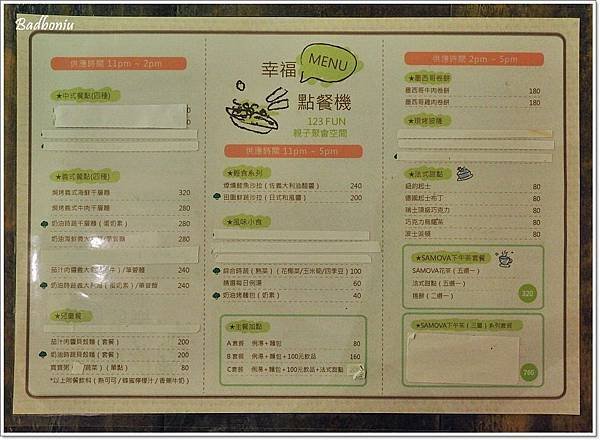 Badboniu
供應時間 11pm ~ 2pm
★中式餐點(四種)
★義式餐點(四種)
焗烤義式海鮮千層麵 320
焗烤義式牛肉千層麵 280
奶油時蔬千層麵（蛋奶素） 280
奶油海鮮義大利麵/筆管麵 280
茄汁肉醬義大利麵（牛）/筆管麵 240
奶油時蔬義大利麵（蛋奶素）/筆管麵 240
★兒童餐
茄汁肉醬貝殼麵（套餐） 200
奶油時蔬貝殼麵（套餐） 200
寶寶粥（蔬菜）（單點） 80
*以上附餐飲料（熱可可/蜂蜜檸檬汁/香蕉牛奶）
幸福 MENU
點餐機
123 FUN
親子聚會空間
供應時間 11pm ~ 5pm
★輕食系列
煙燻鮭魚沙拉（佐義大利油醋醬） 240
田園鮮蔬沙拉（日式和風醬） 200
★風味小食
綜合時蔬（熱菜）（花椰菜/玉米筍/四季豆） 100
精選每日例湯 60
奶油烤麵包（奶素） 40
★主餐加點
A套餐 例湯+麵包 80
B套餐 例湯+麵包+100元飲品 160
C套餐 例湯+麵包+100元飲品+法式甜點 200
供應時間 2pm ~ 5pm
★墨西哥卷餅
墨西哥牛肉卷餅 180
墨西哥雞肉卷餅 180
★現烤披薩
★法式甜點
紐約起士 80
德國起士布丁 80
瑞士頂級巧克力 80
巧克力烏龍茶 80
波士頓派 80
★SAMOVA下午茶套餐
SAMOVA花茶（五選一）
法式甜點（五選一）
捲餅（二選一）
320
★SAMOVA下午茶（三層）系列套餐
760